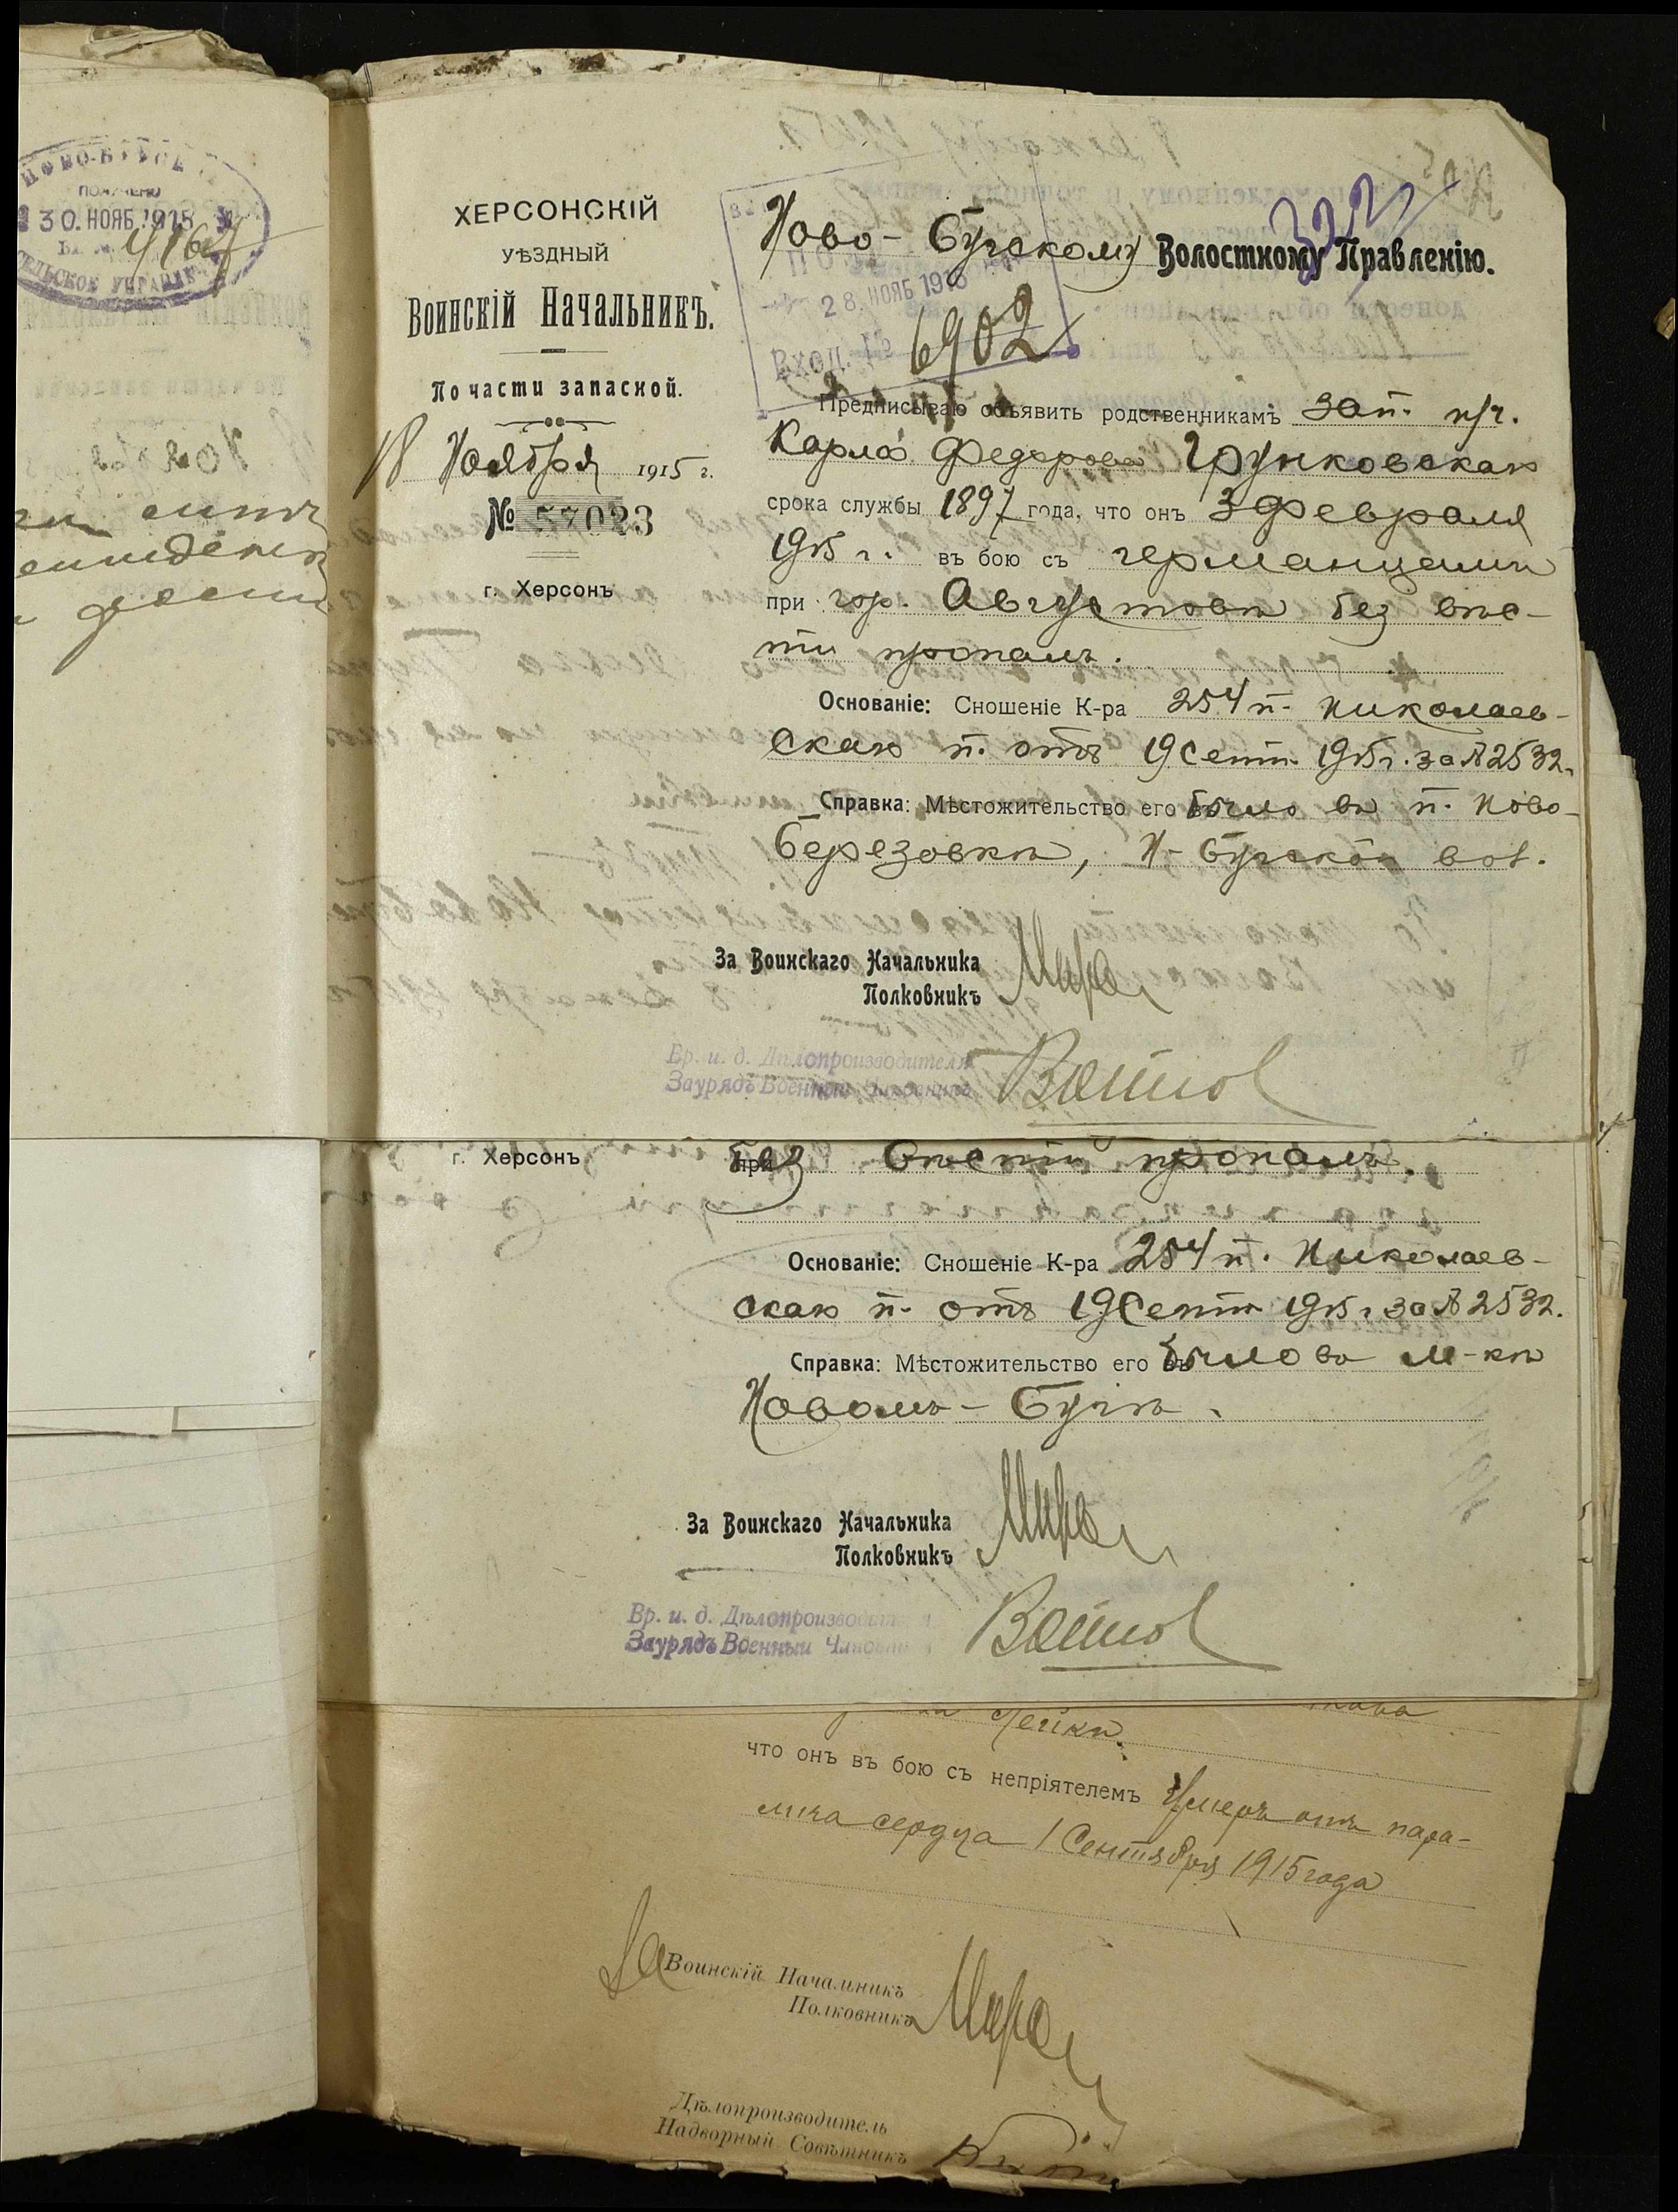 НОВО-БУГСК
ПОЛУЧЕНО
30. НОЯБ. 1915
СЕЛЬСКОЕ УПРАВЛ
ХЕРСОНСКІЙ
УѢЗДНЫЙ
Воинскій Начальникъ.
По части запасной.
18 Ноября 1915 г.
№ 57023
г. Херсонъ
332
Ново-Бугскому Волостному Правленію.
28. НОЯБ 1915
Вход. № 6902
Предписываю объявить родственникамъ зап.
Карла Федорова Грунковскаго
срока службы 1897 года, что онъ 3 Февраля
1915 г. въ бою съ германцами
при гор. Августовѣ без вѣс-
ти пропалъ.
Основаніе: Сношеніе К-ра 254 п. Николаев-
скаго п. отъ 19 Сент. 1915 г. за № 2532.
Справка: Мѣстожительство его было въ п. Ново-
Березовкѣ, Н-Бугской вол.
За Воинскаго Начальника
Полковникъ
Вр. и. д. Дѣлопроизводителя
Заурядъ Военный Чиновникъ
г. Херсонъ
при без вѣсти пропалъ.
Основаніе: Сношеніе К-ра 254 п. Николаев-
скаго п. отъ 19 Сент 1915 г. за № 2532.
Справка: Мѣстожительство его было въ м-кѣ
Новомъ-Бугѣ.
За Воинскаго Начальника
Полковникъ
Вр. и. д. Дѣлопроизводителя
Заурядъ Военный Чиновникъ
что онъ въ бою съ непріятелемъ Умеръ отъ пара-
лича сердца 1 Сентября 1915 года
За Воинскій Начальникъ
Полковникъ
Дѣлопроизводитель
Надворный Совѣтникъ